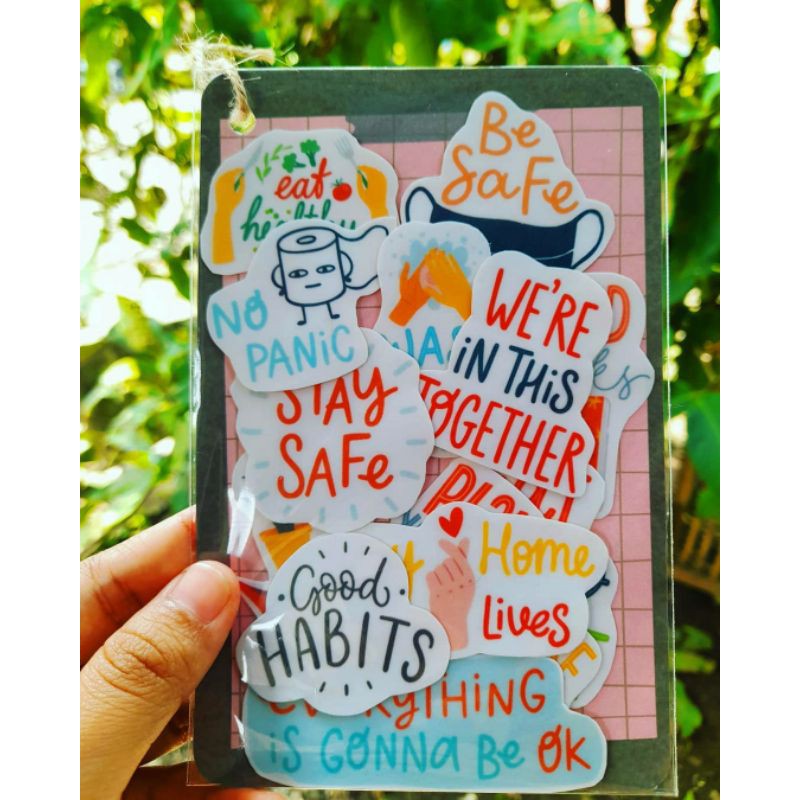 eat
healthy
Be
SaFe
NO
PANiC
WE'RE
iN THiS
TOGETHER
STAY
SAFe
Home
Lives
Good
HABITS
EVERYTHiNG
iS GONNa Be OK